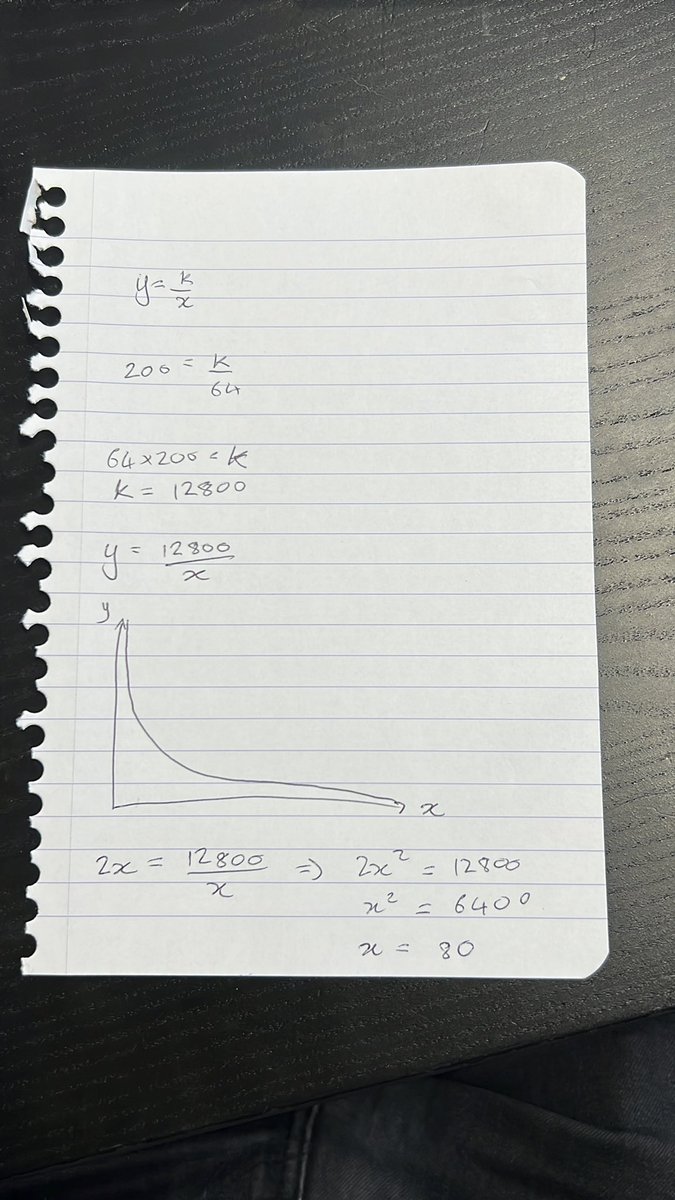 y = k/x
200 = k/64
64 × 200 = k
k = 12800
y = 12800/x
y
x
2x = 12800/x ⇒ 2x² = 12800
x² = 6400
x = 80